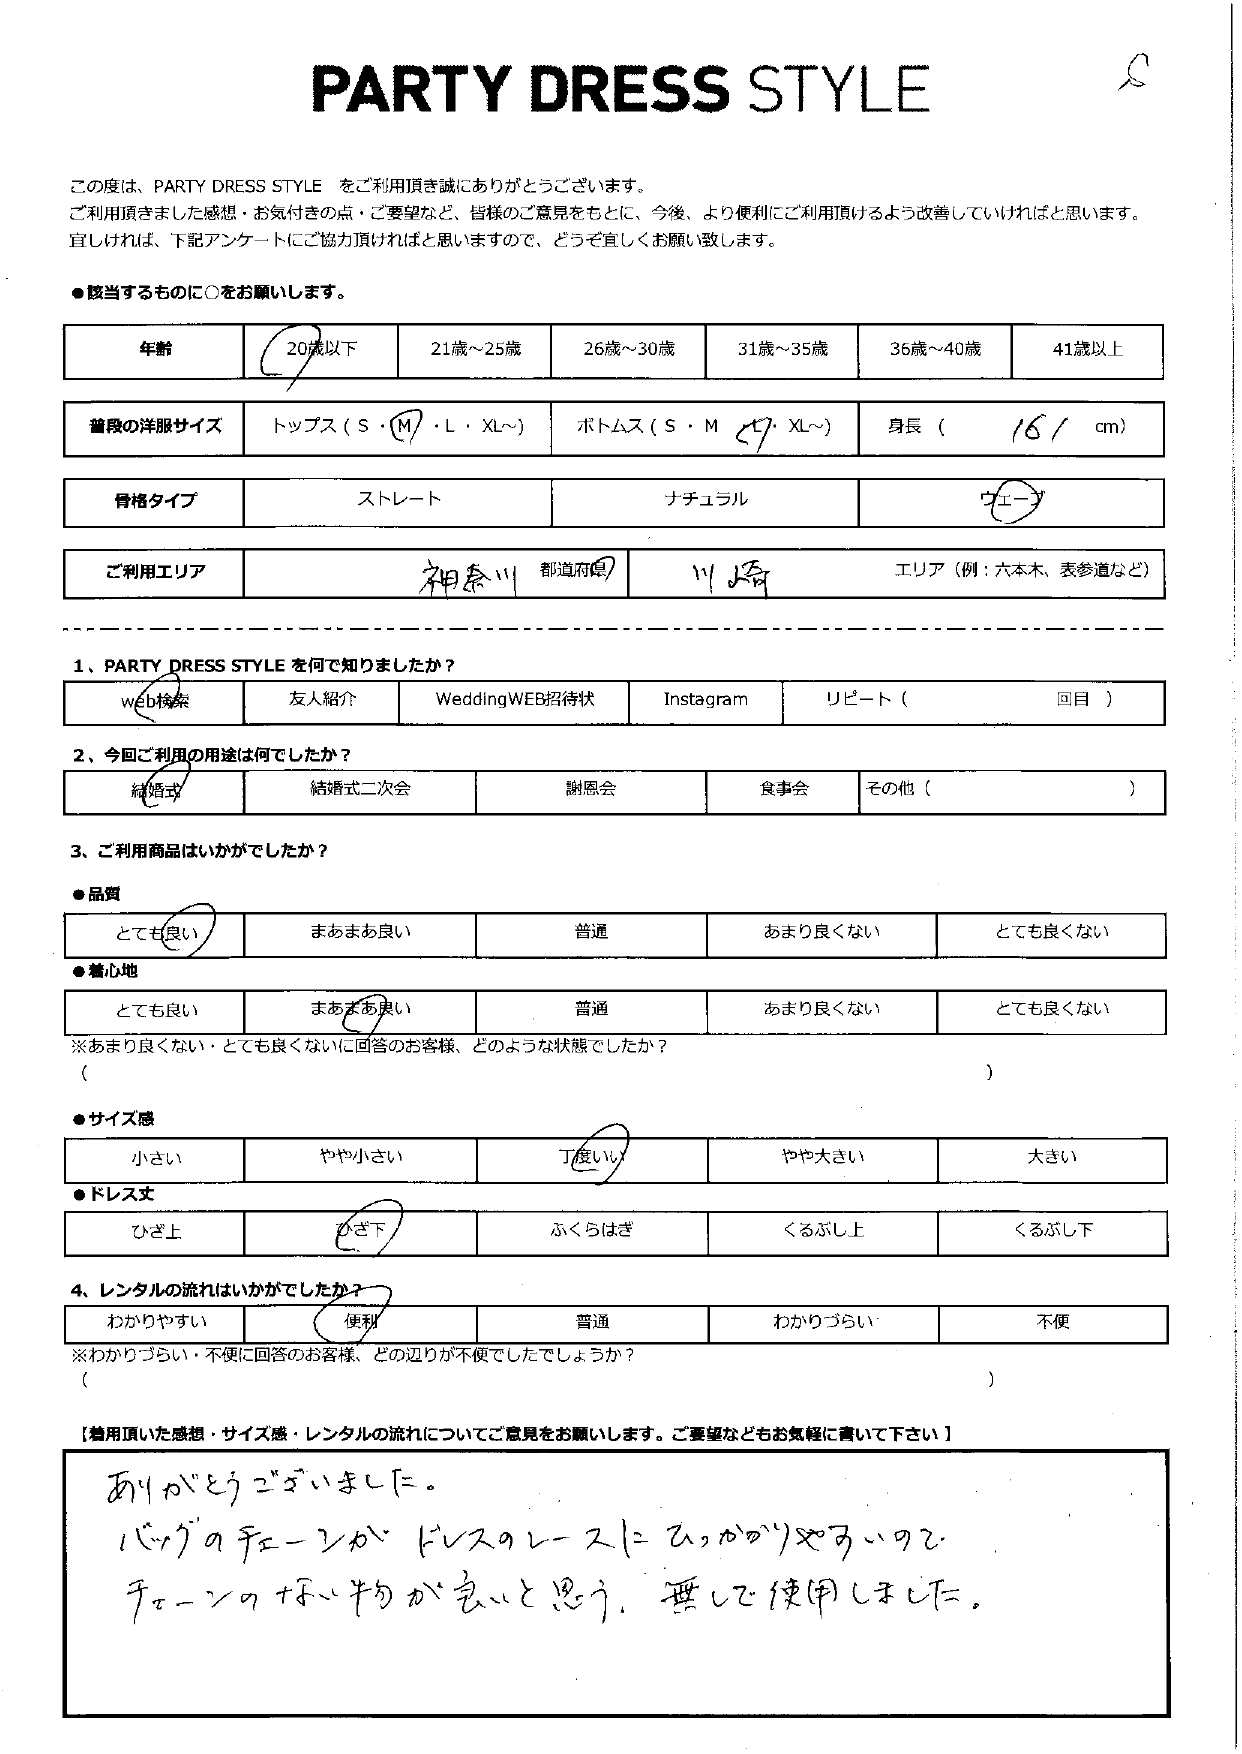 PARTY DRESS STYLE
この度は、PARTY DRESS STYLE　をご利用頂き誠にありがとうございます。
ご利用頂きました感想・お気付きの点・ご要望など、皆様のご意見をもとに、今後、より便利にご利用頂けるよう改善していければと思います。
宜しければ、下記アンケートにご協力頂ければと思いますので、どうぞ宜しくお願い致します。
●該当するものに○をお願いします。
年齢 20歳以下 21歳～25歳 26歳～30歳 31歳～35歳 36歳～40歳 41歳以上
普段の洋服サイズ トップス ( S ・ M ・ L ・ XL～) ボトムス ( S ・ M ・ L ・ XL～) 身長 ( 161 cm)
骨格タイプ ストレート ナチュラル ウェーブ
ご利用エリア 神奈川 都道府県 川崎 エリア（例：六本木、表参道など）
1、PARTY DRESS STYLE を何で知りましたか？
web検索 友人紹介 WeddingWEB招待状 Instagram リピート ( 回目 )
2、今回ご利用の用途は何でしたか？
結婚式 結婚式二次会 謝恩会 食事会 その他 ( )
3、ご利用商品はいかがでしたか？
●品質
とても良い まあまあ良い 普通 あまり良くない とても良くない
●着心地
とても良い まあまあ良い 普通 あまり良くない とても良くない
※あまり良くない・とても良くないに回答のお客様、どのような状態でしたか？
( )
●サイズ感
小さい やや小さい 丁度いい やや大きい 大きい
●ドレス丈
ひざ上 ひざ下 ふくらはぎ くるぶし上 くるぶし下
4、レンタルの流れはいかがでしたか？
わかりやすい 便利 普通 わかりづらい 不便
※わかりづらい・不便に回答のお客様、どの辺りが不便でしたでしょうか？
( )
【着用頂いた感想・サイズ感・レンタルの流れについてご意見をお願いします。ご要望などもお気軽に書いて下さい】
ありがとうございました。
バッグのチェーンがドレスのレースにひっかかりやすいので
チェーンのない物が良いと思う。無しで使用しました。